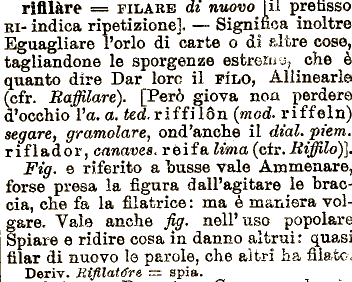 rifilàre = FILARE di nuovo [il prefisso
RI- indica ripetizione]. — Significa inoltre
Eguagliare l'orlo di carte o di altre cose,
tagliandone le sporgenze estreme, che è
quanto dire Dar loro il FILO, Allinearle
(cfr. Raffilare). [Però giova non perdere
d'occhio l'a. a. ted. riffilôn (mod. riffeln)
segare, gramolare, ond'anche il dial. piem.
riflador, canaves. reifa lima (ctr. Riffilo)].
Fig. e riferito a busse vale Ammenare,
forse presa la figura dall'agitare le brac-
cia, che fa la filatrice: ma è maniera vol-
gare. Vale anche fig. nell'uso popolare
Spiare e ridire cosa in danno altrui: quasi
filar di nuovo le parole, che altri ha filate.
Deriv. Rifilatóre = spia.